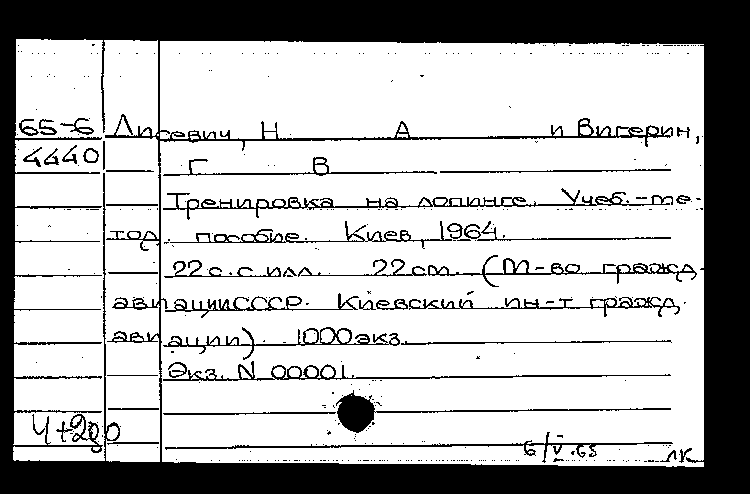 65-6 Лисевич, Н А и Вигерин,
4440 Г В
Тренировка на лопинге. Учеб.-ме-
тод. пособие. Киев, 1964.
22 с. с илл. 22 см. (М-во гражд.
авиации СССР. Киевский ин-т гражд.
авиации). 1000 экз.
Экз. N 00001.
6/V.65
лк